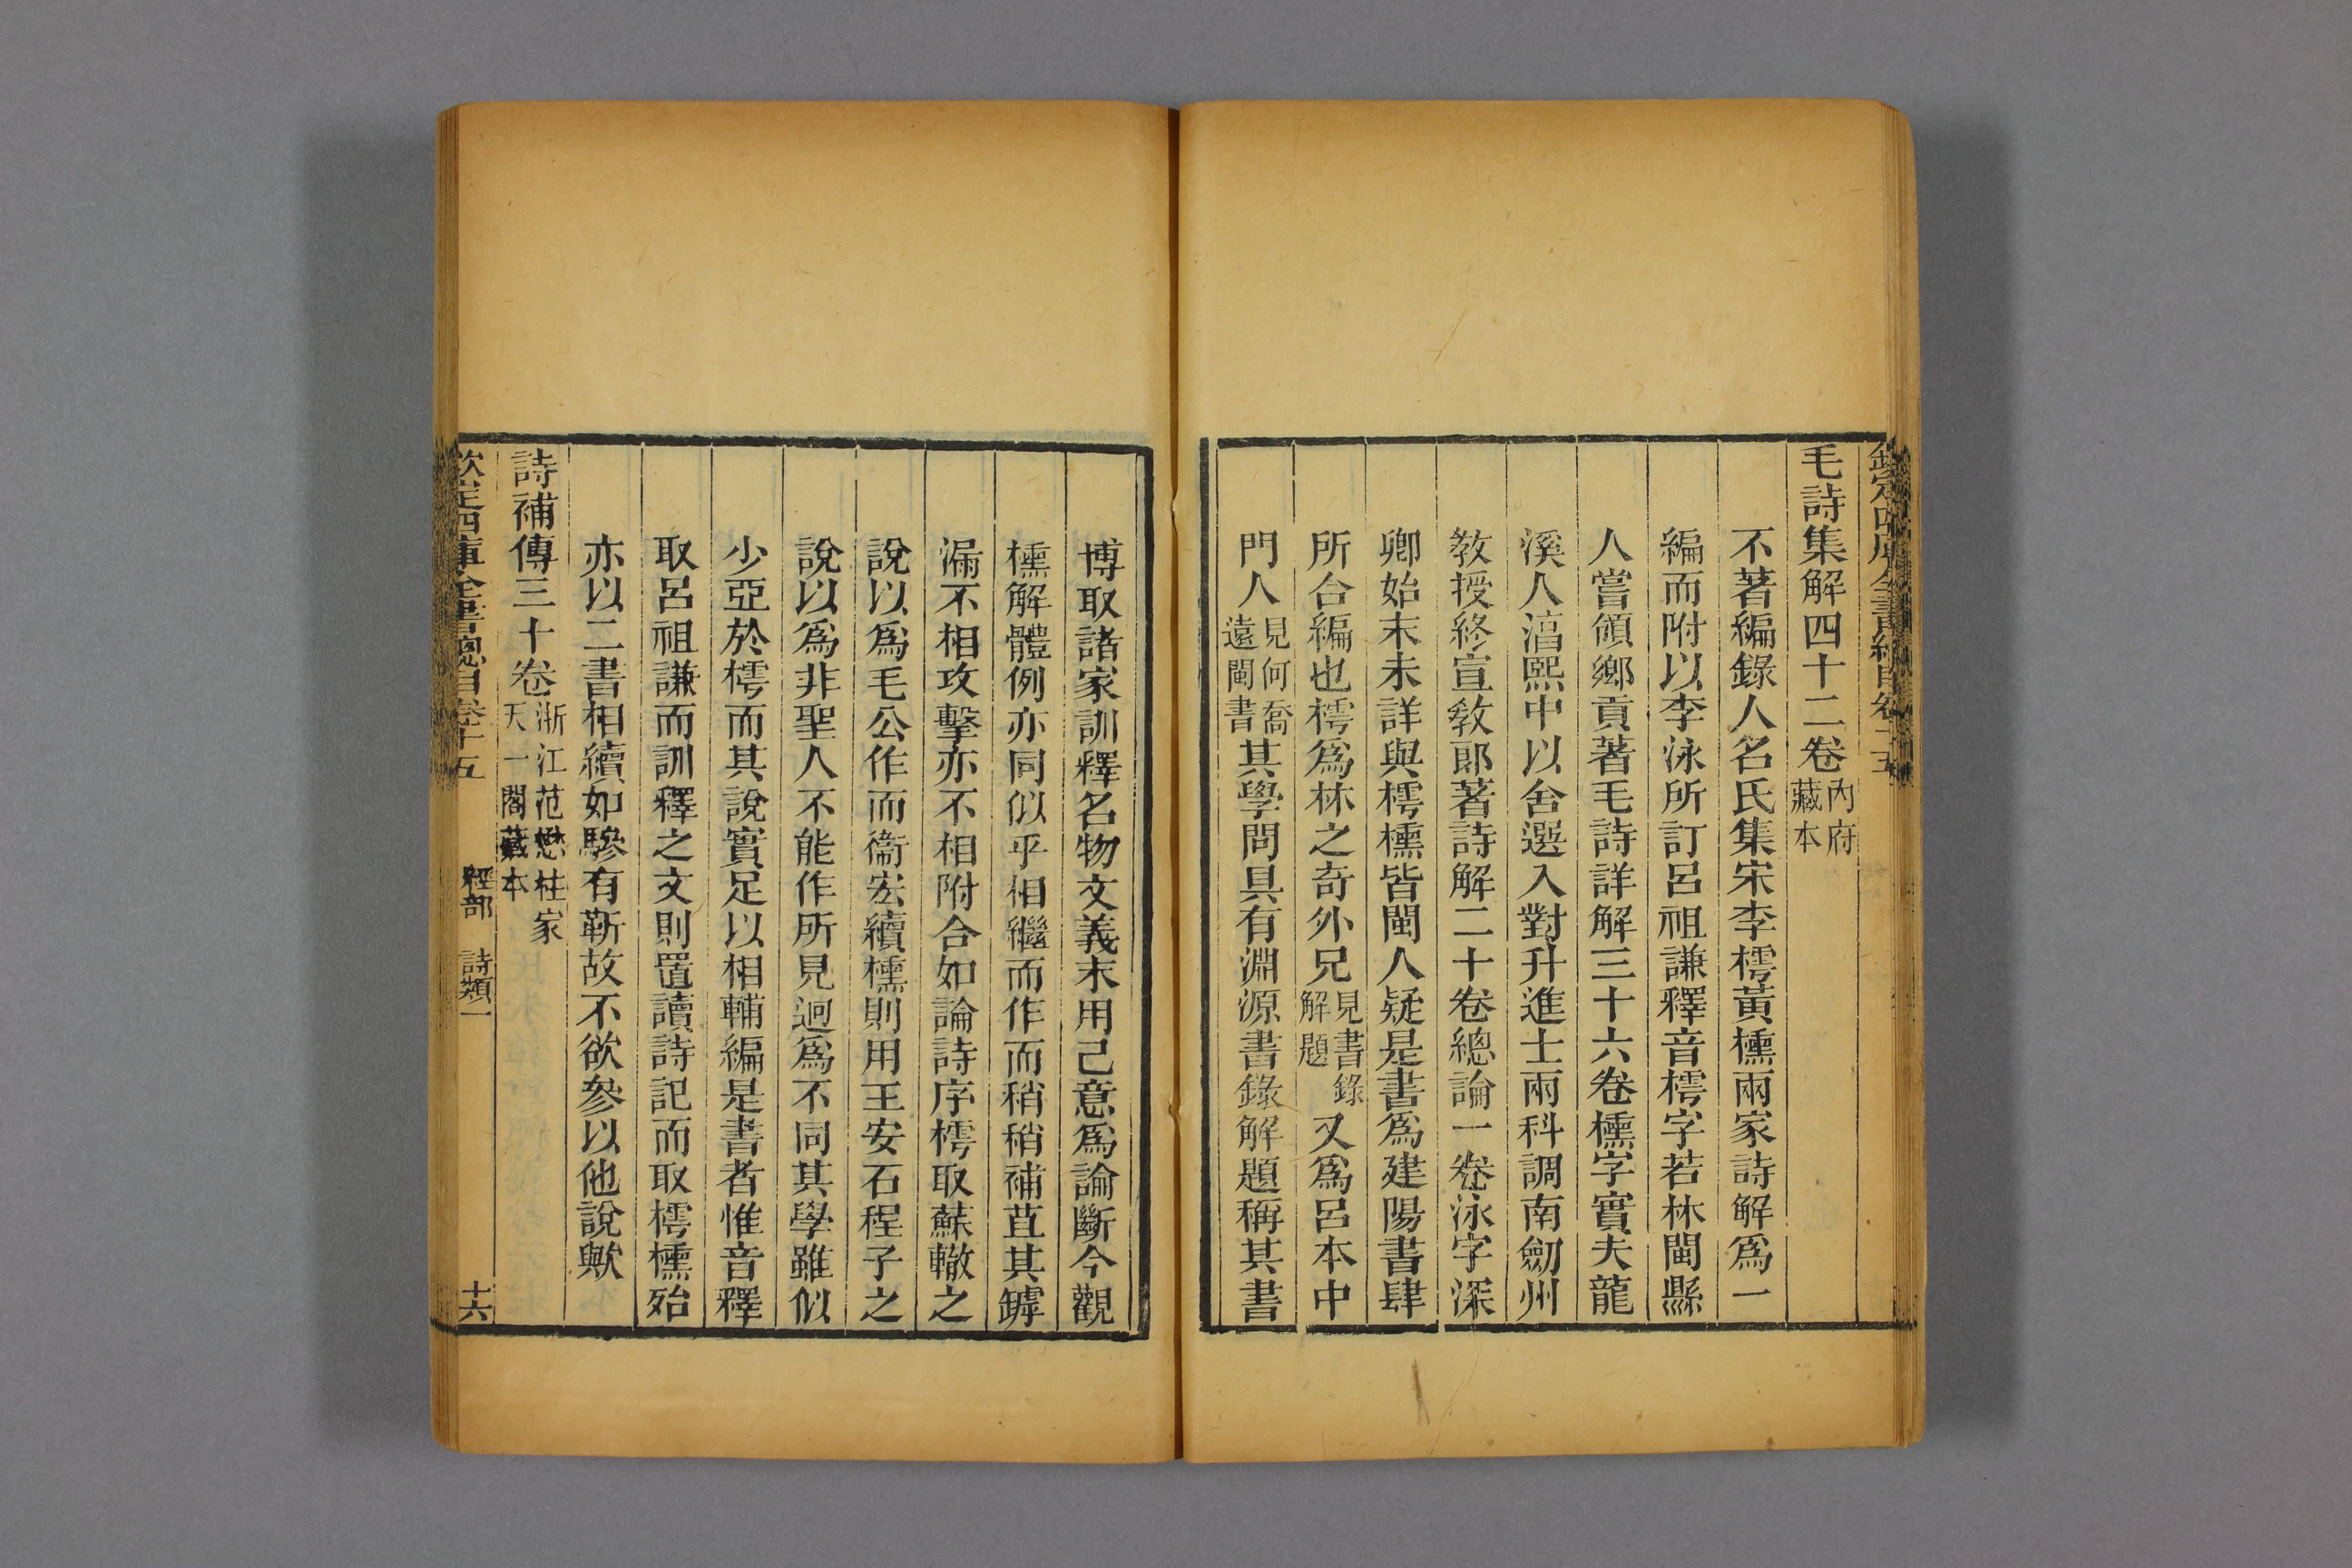 欽定四庫全書總目卷十五
毛詩集解四十二卷內府藏本
不著編錄人名氏集宋李樗黃櫄兩家詩解為一
編而附以李泳所訂呂祖謙釋音樗字若林閩縣
人嘗領鄉貢著毛詩詳解三十六卷櫄字實夫龍
溪人淳熙中以舍選入對升進士兩科調南劒州
教授終宣教郎著詩解二十卷總論一卷泳字深
卿始末未詳與樗櫄皆閩人疑是書為建陽書肆
所合編也樗為林之奇外兄見書錄解題又為呂本中
門人見何喬遠閩書其學問具有淵源書錄解題稱其書
博取諸家訓釋名物文義末用己意為論斷今觀
櫄解體例亦同似乎相繼而作而稍稍補苴其罅
漏不相攻擊亦不相附合如論詩序樗取蘇轍之
說以為毛公作而衞宏續櫄則用王安石程子之
說以為非聖人不能作所見迥為不同其學雖似
少亞於樗而其說實足以相輔編是書者惟音釋
取呂祖謙而訓釋之文則置讀詩記而取樗櫄殆
亦以二書相續如驂有靳故不欲參以他說歟
詩補傳三十卷浙江范懋柱家天一閣藏本
欽定四庫全書總目卷十五　經部　詩類一　十六